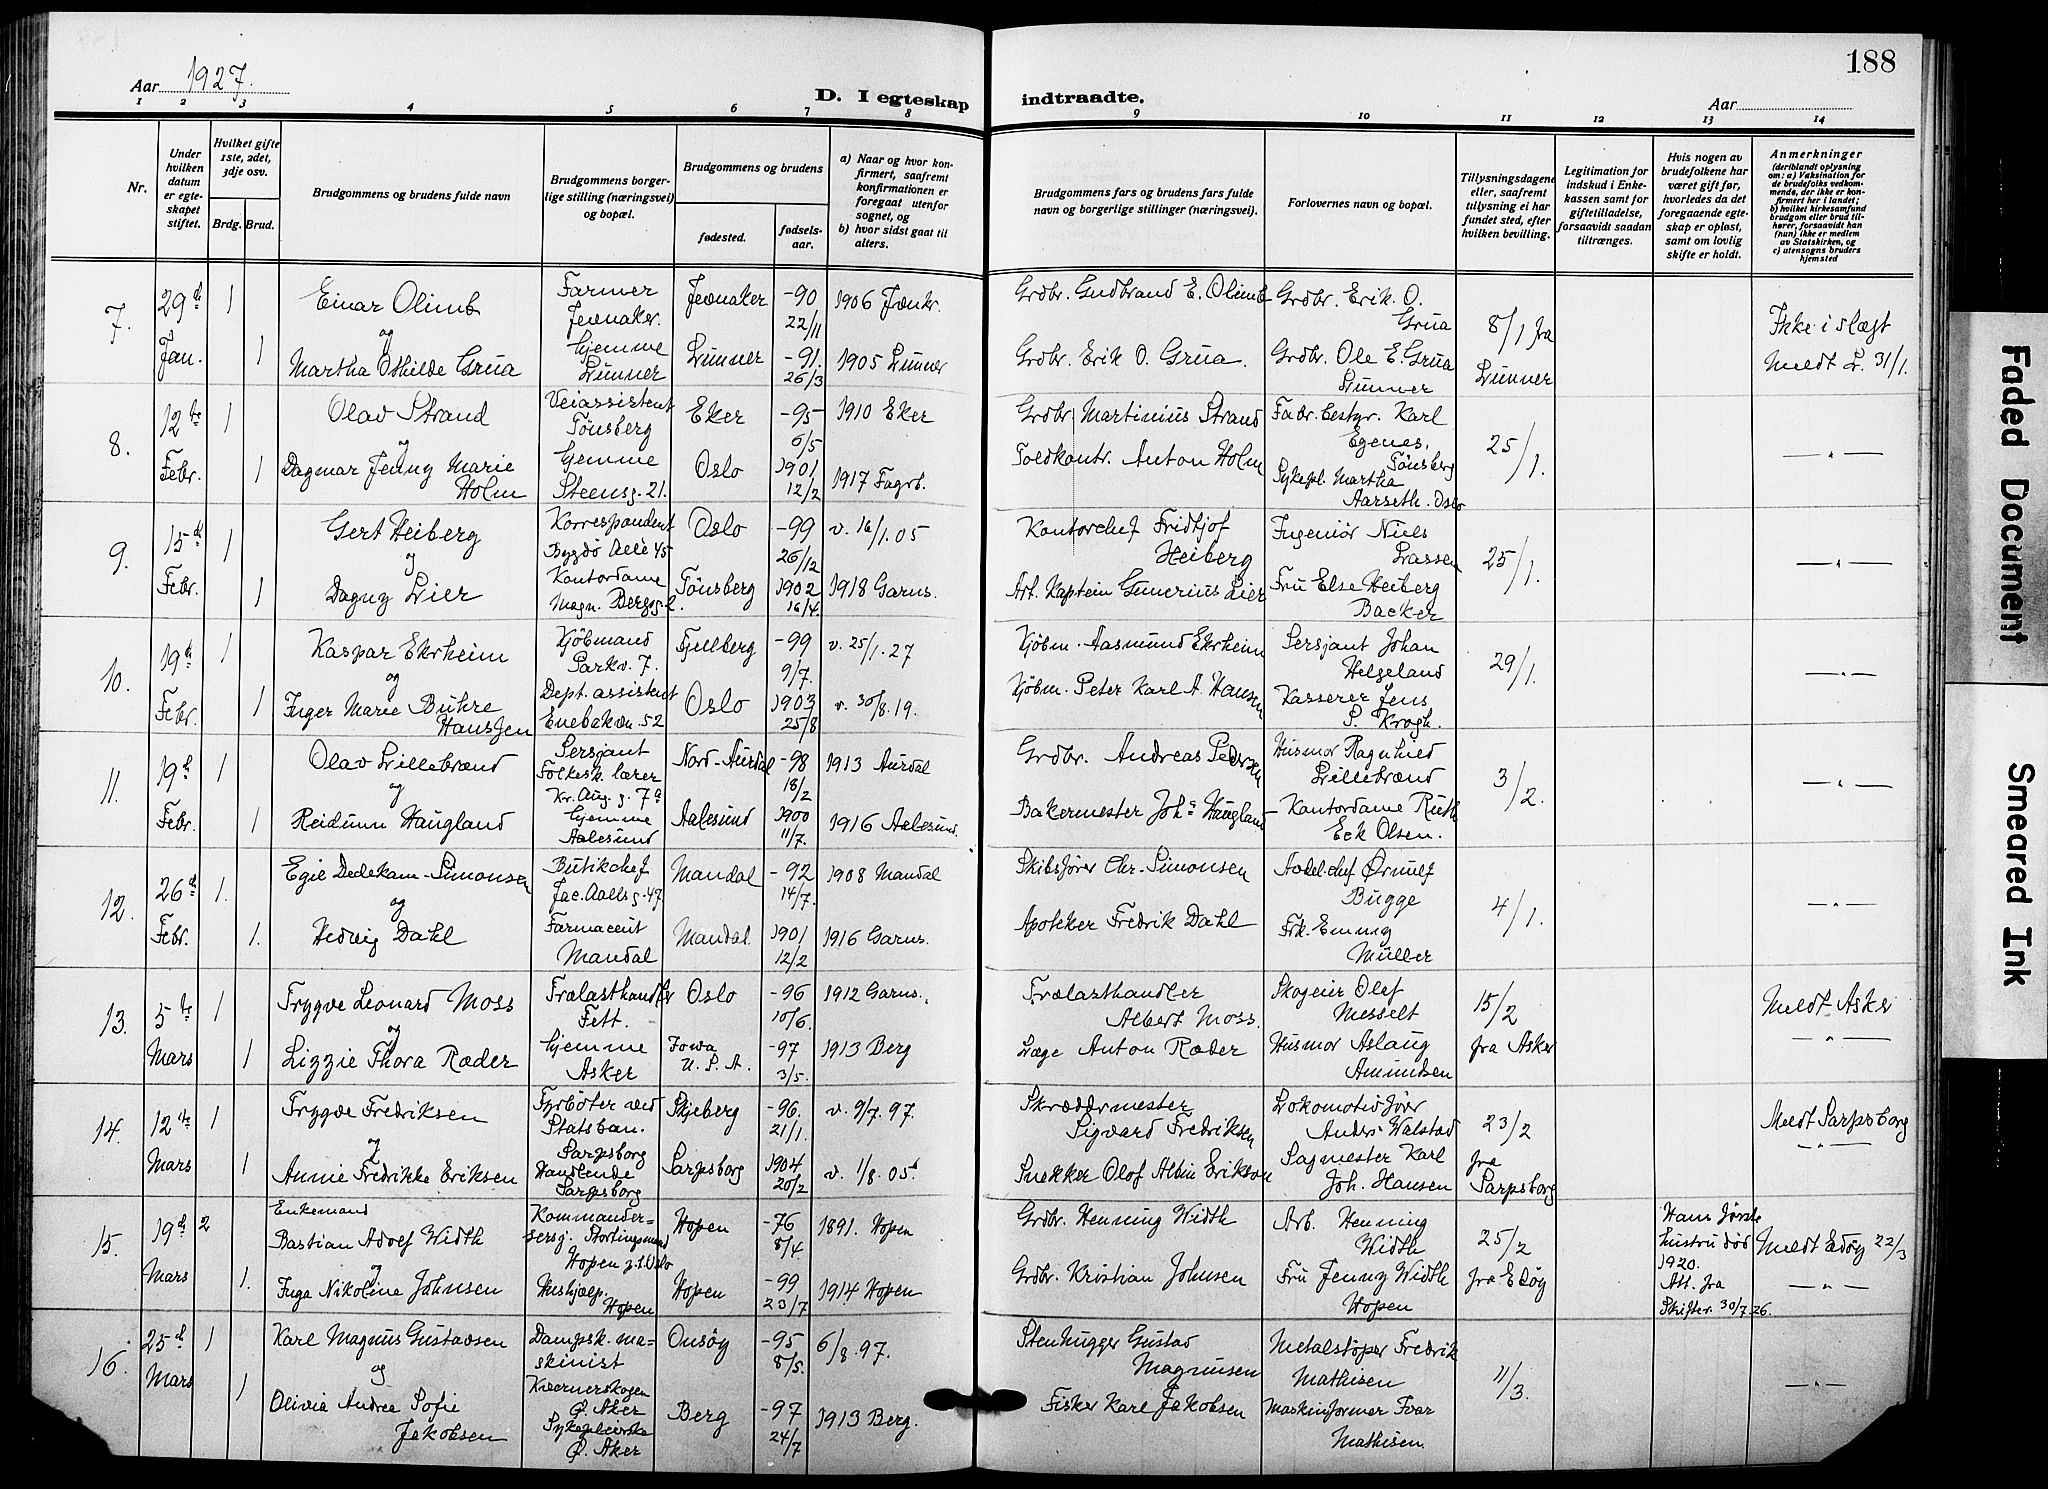 188
Aar 1927.
D. I egteskap indtraadte.
Aar
1 2 3 4 5 6 7 8 9 10 11 12 13 14
Nr.
Under hvilken datum er egteskapet stiftet.
Hvilket gifte 1ste, 2det, 3dje osv.
Brdg. Brud.
Brudgommens og brudens fulde navn
Brudgommens borgerlige stilling (næringsvei) og bopæl.
Brudgommens og brudens
fødested.
fødselsaar.
a) Naar og hvor konfirmert, saafremt konfirmationen er foregaat utenfor sognet, og
b) hvor sidst gaat til alters.
Brudgommens fars og brudens fars fulde navn og borgerlige stillinger (næringsvei).
Forlovernes navn og bopæl.
Tillysningsdagene eller, saafremt tillysning ei har fundet sted, efter hvilken bevilling.
Legitimation for indskud i Enkekassen samt for giftetilladelse, forsaavidt saadan tiltrænges.
Hvis nogen av brudefolkene har været gift før, hvorledes da det foregaaende egteskap er opløst, samt om lovlig skifte er holdt.
Anmerkninger
(deriblandt oplysning om: a) Vaksination for de brudefolks vedkommende, der ikke er konfirmert her i landet; b) hvilket kirkesamfund brudgom eller brud tilhører, forsaavidt han (hun) ikke er medlem av Statskirken, og c) utensogns bruders hjemsted
7. 29d Jan. 1 Einar Olimb Farmer Jevnaker. Jevnaker -90 22/11 1906 Jevnkr. Grdbr. Gudbrand E. Olimb Grdbr. Erik O. Grua 8/1 fra Lunner Ikke i slegt
og
1 Martha Othilde Grua hjemme Lunner Lunner -91. 26/3 1905 Lunner Grdbr. Erik O. Grua. Grdbr. Ole E. Grua Lunner Meldt L. 31/1.
8. 12te Febr. 1 Olav Strand Veiassistent Tønsberg Eker -95 6/5 1910 Eker Grdbr Martinius Strand Fabr. bestyr. Karl Egenes, Tønsberg 25/1. — " —
og
1 Dagmar Jenny Marie Holm hjemme Steensg. 21. Oslo 1901 12/2 1917 Fagrb. Toldkontr. Anton Holm Sykepl. Martha Aarseth. Oslo
9. 15d Febr. 1 Gert Heiberg Korrespondent Bygdø Alle 45 Oslo -99 26/12 v. 16/1.05 Kontorchef Fridtjof Heiberg Ingeniør Niels Lassen 25/1. — " —
og
1 Dagny Lier Kontordame Magn. Bergsg 2. Tønsberg 1902 16/4. 1918 Garns. Art. Kaptein Gunerius Lier Fru Else Heiberg Backer
10. 19d Febr. 1 Kaspar Ekrheim Kjøbmand Parkv. 7. Fjelberg -99 9/7. v. 25/1.27 Kjøbm. Aasmund Ekrheim Sersjant Johan Helgeland 29/1. — " —
og
1 Inger Marie Buhre Hanssen Dept. assistent Enebakvn. 52 Oslo 1903 25/8 v. 30/8.19. Kjøbm. Peter Karl A. Hansen Kasserer Jens S. Krogh.
11. 19d Febr. 1 Olav Lillebrænd Sersjant Folkesk. lærer Kr. Aug. g. 7a Nord-Aurdal -98 18/2 1913 Aurdal Grdbr. Andreas Pedersen Husmor Ragnhild Lillebrænd 3/2. — " —
og
1 Reidunn Haugland hjemme Aalesund Aalesund 1900 11/7. 1916 Aalesund. Bakermester Johs Haugland — Kontordame Ruth Eek Olsen.
12. 26d Febr. 1. Egil Dedekam-Simonsen Butikchef Jac. Aallsg. 47 Mandal -92 14/7. 1908 Mandal Skibsfører Chr. Simonsen Avdel.chef Ørnulf Bugge 4/1. — " —
og
1. Hedvig Dahl Farmaceut Mandal Mandal 1901 12/2 1916 Garns. Apotheker Fredrik Dahl Frk. Emmy Müller
13. 5te Mars 1 Trygve Leonard Moss Trælasthandler Fett. Oslo -96 10/6. 1912 Garns. Trælasthandler Albert Moss. Skogeier Olef Messelt 15/2 fra Asker Meldt Asker
og
1 Lizzie Thora Ræder hjemme Asker Iowa U. S. A. -97 3/5. 1913 Berg Læge Anton Ræder Husmor Aslaug Amundsen — " —
14. 12te Mars 1 Trygve Fredriksen Fyrbøter ved Statsban. Sarpsborg Skjeberg -96. 21/1. v. 9/7.97. Skræddermester Sigvard Fredriksen Lokomotivfører Anders Walstad 23/2 fra Sarpsborg Meldt Sarpsborg
og
1 Annie Fredrikke Eriksen Handlende Sarpsborg Sarpsborg 1904 20/2 v. 1/8.05 Snekker Olof Albin Erikson Sagmester Karl Joh. Hansen — " —
15. 19d Mars 2 Enkemand Bastian Adolf Width Kommandersersj. Stortingsmand Hopen p.t. Oslo Hopen -76 8/4 1891. Hopen Grdbr. Henning Width Arb. Henning Width 25/2 fra Edøy Hans første hustru død 1920. Att. fra Skifter. 30/7.26. Meldt Edøy 22/3
og
1. Inga Nikoline Johnsen Hushjælp. Hopen Hopen -99 23/7 1914 Hopen Grdbr. Kristian Johnsen Fru Jenny Width Hopen — " —
16. 25d Mars 1 Karl Magnus Gustavsen Dampsk. maskinist Kværnerskogen Ø. Aker Onsøy -95 8/5. 6/8.97. Stenhugger Gustav Magnusen Metalstøper Fredrik Mathisen 11/3. — " —
og
1 Olivia Andrea Sofie Jakobsen Sykepleierske Ø. Aker Berg -97 24/7 1913 Berg. Fisker Karl Jakobsen Maskinformer Ivar Mathisen.
Faded Document
Smeared Ink